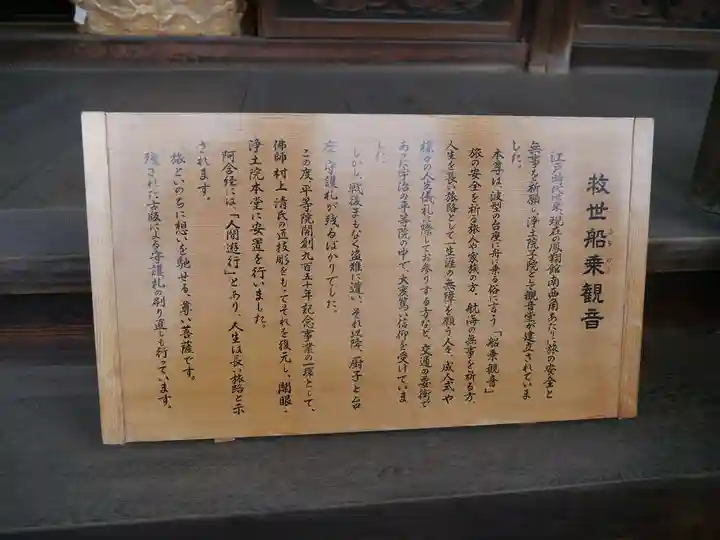 救世船乗観音
ふな のり
江戸時代世、現在の鳳翔館南西角あたりに旅の安全と
無事を祈願し浄土院子院として観音堂が建立されていま
した。
本尊は、波型の台座に舟に乗る俗に言う「船乗観音」
旅の安全を祈る旅人や家族の方、航海の無事を祈る方、
人生を長い旅路として一生涯の無障を願う人々、成人式や
様々の人生儀礼に際してお参りする方など、交通の要衝で
あった宇治の平等院の中で、大変篤い信仰を受けていま
した。
しかし、戦後まもなく盗難に遭い、それ以降、厨子と台
座、守護札が残るばかりでした。
この度、平等院開創九百五十年記念事業の一環として、
佛師村上清氏の匠技彫をもってそれを復元し、開眼・
浄土院本堂に安置を行いました。
阿含経には、「人間遊行」とあり、人生は長い旅路と示
されます。
旅といのちに想いを馳せる、尊い菩薩です。
残された古版による守護札の刷り直しも行っています。